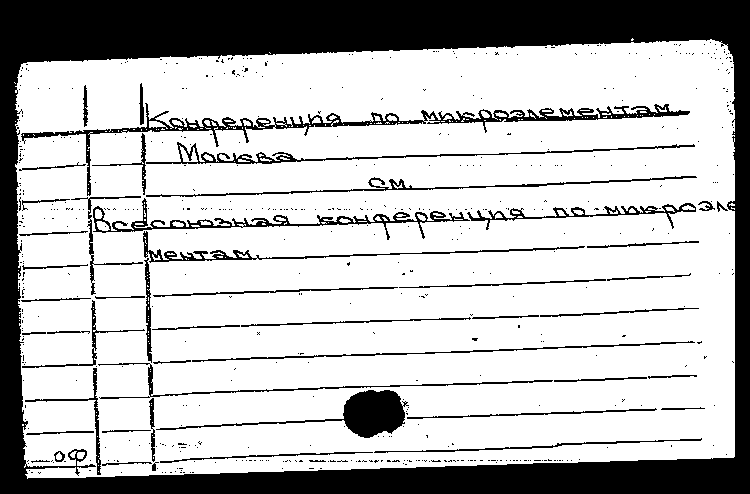 Конференция по микроэлементам.
Москва.
см.
Всесоюзная конференция по микроэле
ментам.
оф